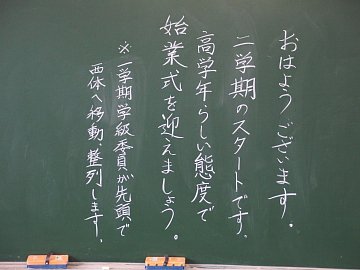 おはようございます。
二学期のスタートです。
高学年らしい態度で
始業式を迎えましょう。
※一学期学級委員が先頭で
西体へ移動、整列します。